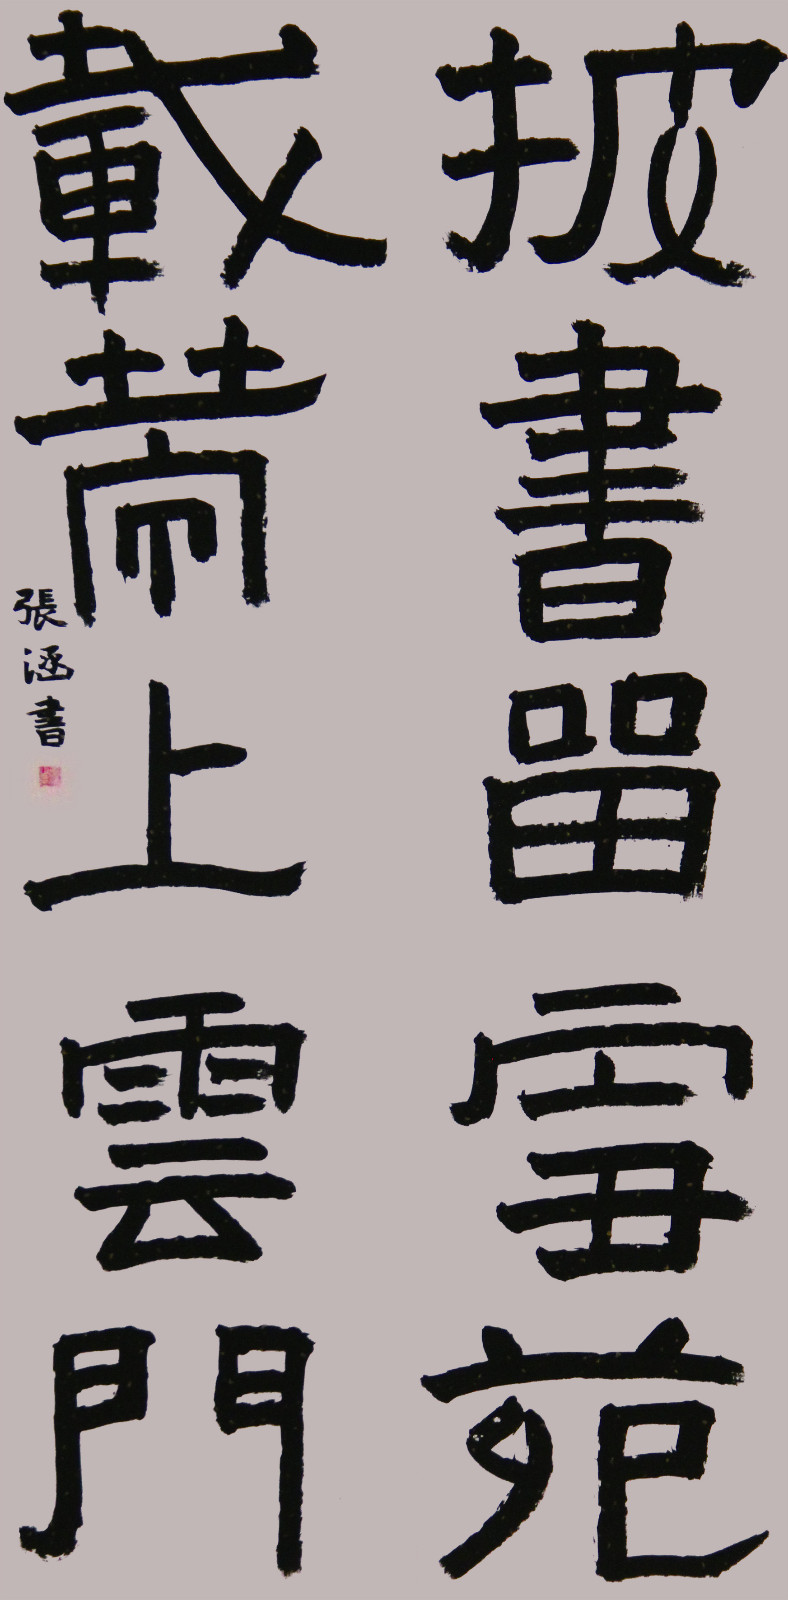 披書留雪苑
載帶上雲門
張涵書